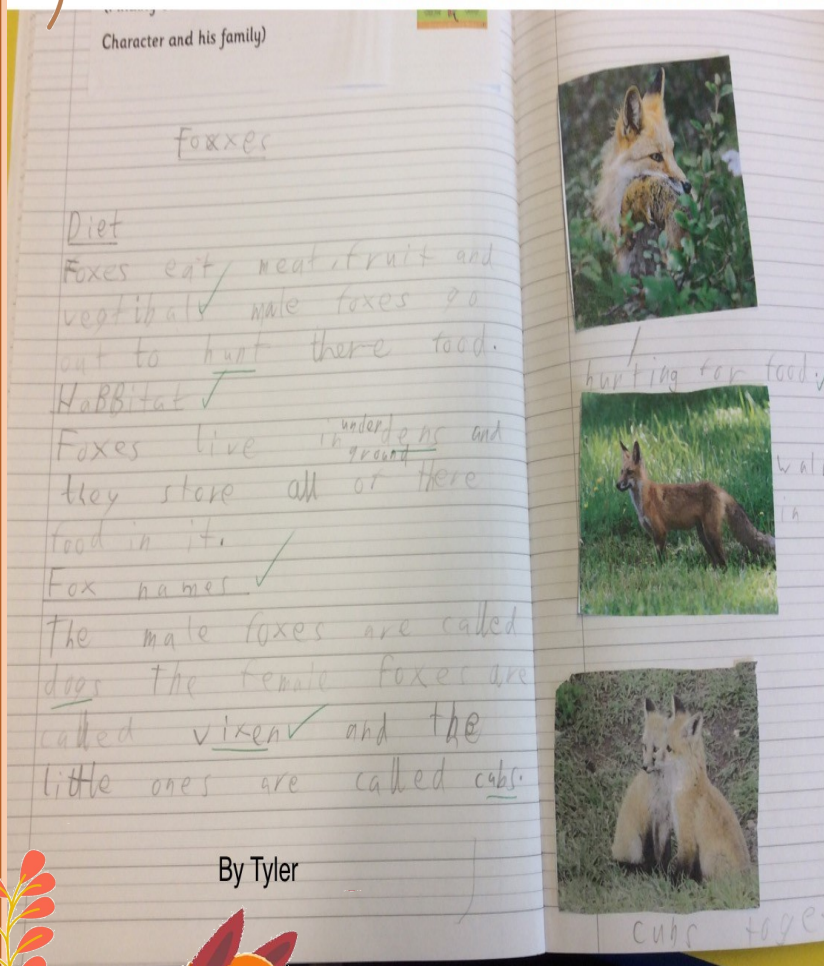 Character and his family)
Foxxes
Diet
Foxes eat meat, fruit and
vegtibals male foxes go
out to hunt there food.
HaBBitat
Foxes live in under ground dens and
they store all of there
food in it.
Fox names
The male foxes are called
dogs the female foxes are
called vixen and the
little ones are called cubs.
By Tyler
hunting for food.
in
cubs